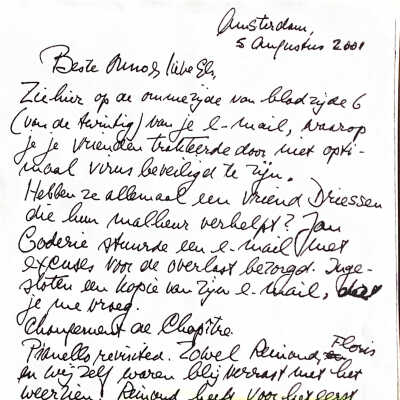 Amsterdam,
5 Augustus 2001
Beste Onno & lieve Els,
Zie hier op de ommezijde van bladzijde 6
(van de twintig) van je e-mail, waarop
je je vrienden trakteerde door niet opti-
maal virus beveiligd te zijn.
Hebben ze allemaal een vriend Driessen
die hun malheur verhelpt? Jan
Coderie stuurde een e-mail met
excuses voor de overlast bezorgd. Inge-
sloten een kopie van zijn e-mail,
je me vroeg.
Changement de Chapître.
revisited. Zowel Reinoud, Floris
en wij zelf waren blij verrast met het
weerzien! Reinoud heeft voor het eerst